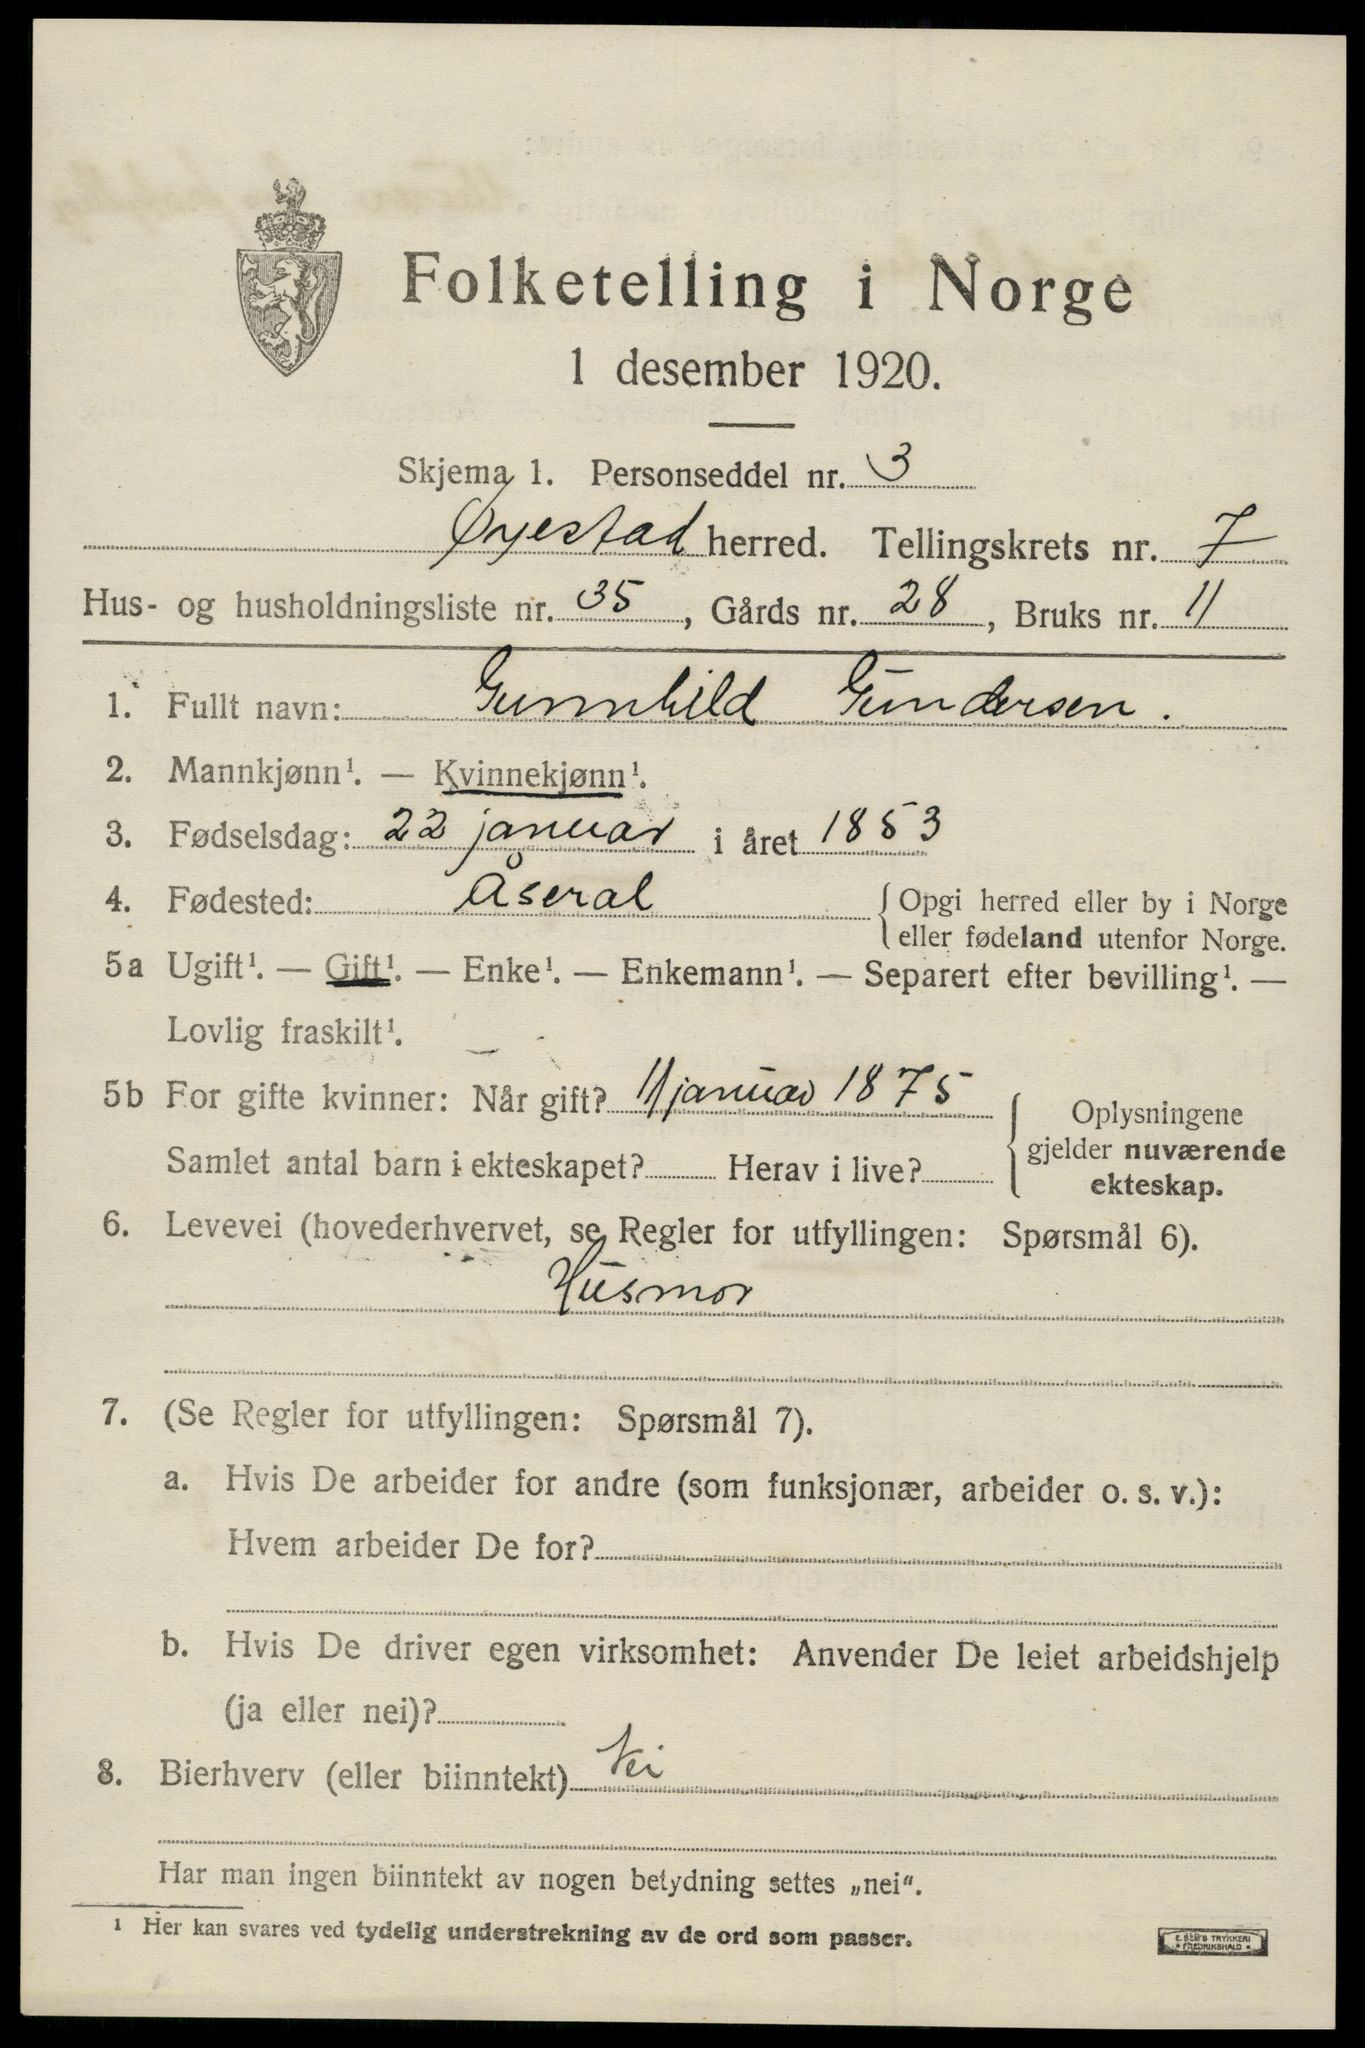 Folketelling i Norge
1 desember 1920.
Skjema 1. Personseddel nr. 3
Øyestad herred. Tellingskrets nr. 7
Hus- og husholdningsliste nr. 35, Gårds nr. 28, Bruks nr. 11
1. Fullt navn: Gunnhild Gundersen.
2. Mannkjønn¹. — Kvinnekjønn¹.
3. Fødselsdag: 22 januar i året 1853
4. Fødested: Åseral { Opgi herred eller by i Norge
eller fødeland utenfor Norge.
5a Ugift¹. — Gift¹. — Enke¹. — Enkemann¹. — Separert efter bevilling¹. —
Lovlig fraskilt¹.
5b For gifte kvinner: Når gift? 11 januar 1875
Samlet antal barn i ekteskapet? Herav i live?
{ Oplysningene
gjelder nuværende
ekteskap.
6. Levevei (hovederhvervet, se Regler for utfyllingen: Spørsmål 6).
Husmor
7. (Se Regler for utfyllingen: Spørsmål 7).
a. Hvis De arbeider for andre (som funksjonær, arbeider o. s. v.):
Hvem arbeider De for?
b. Hvis De driver egen virksomhet: Anvender De leiet arbeidshjelp
(ja eller nei)?
8. Bierhverv (eller biinntekt) Nei
Har man ingen biinntekt av nogen betydning settes „nei“.
¹ Her kan svares ved tydelig understrekning av de ord som passer.
E. SEM'S TRYKKERI
FREDRIKSHALD